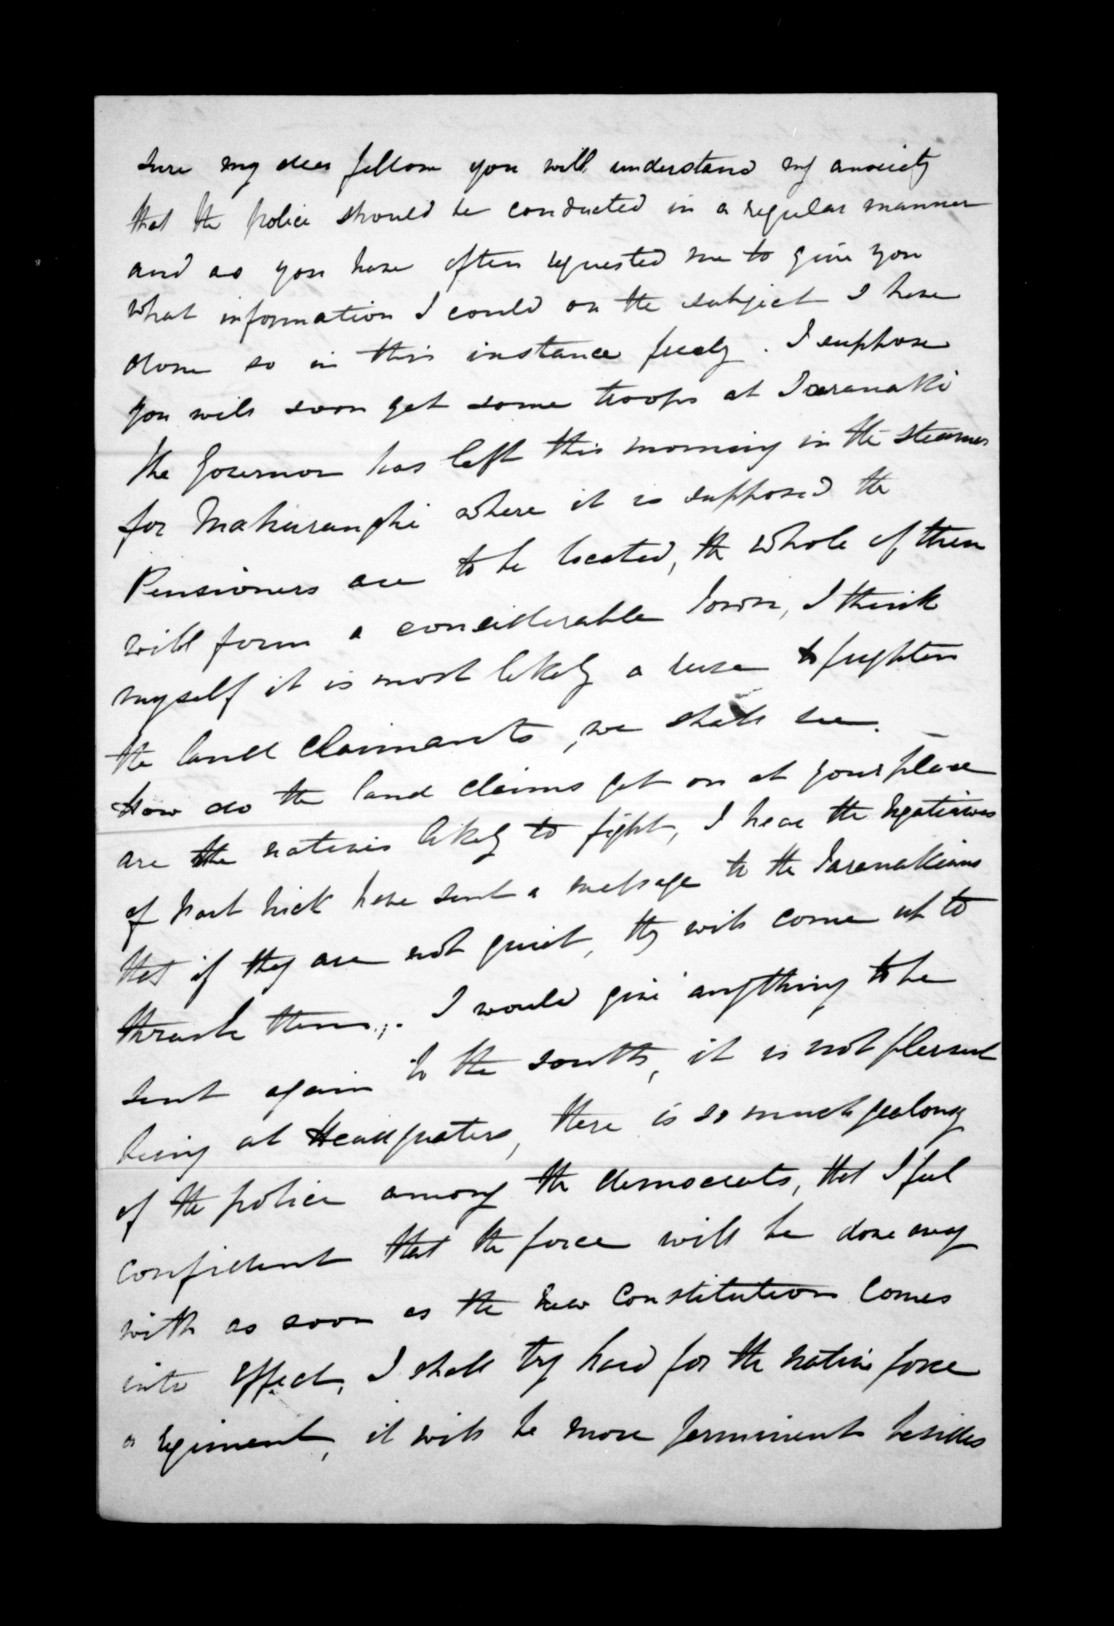 sure my dear fellow you will understand my anxiety
that the police should be conducted in a regular manner
and as you have often requested me to give you
what information I could on the subject I have
done so in this instance freely. I suppose
you will soon get some troops at Taranaki
The Governor has left this morning in the steamer
for Mahuranghi where it is supposed the
Pensioners are to be located, the whole of them
will form a considerable Town, I think
myself it is most likely a ruse to frighten
the land Claimants, we shall see. —
How do the land claims get on at your place
are the natives likely to fight, I hear the Ngatiawas
of Port Nick have sent a message to the Taranakians
that if they are not quiet, they will come up to
thrash them,. I would give anything to be
sent again to the south, it is not pleasant
being at Headquaters, there is so much jealousy
of the police among the democrats, that I feel
confident that the force will be done away
with as soon as the New Constitution Comes
into effect, I shall try hard for the native force
a regiment, it will be more perminent besides